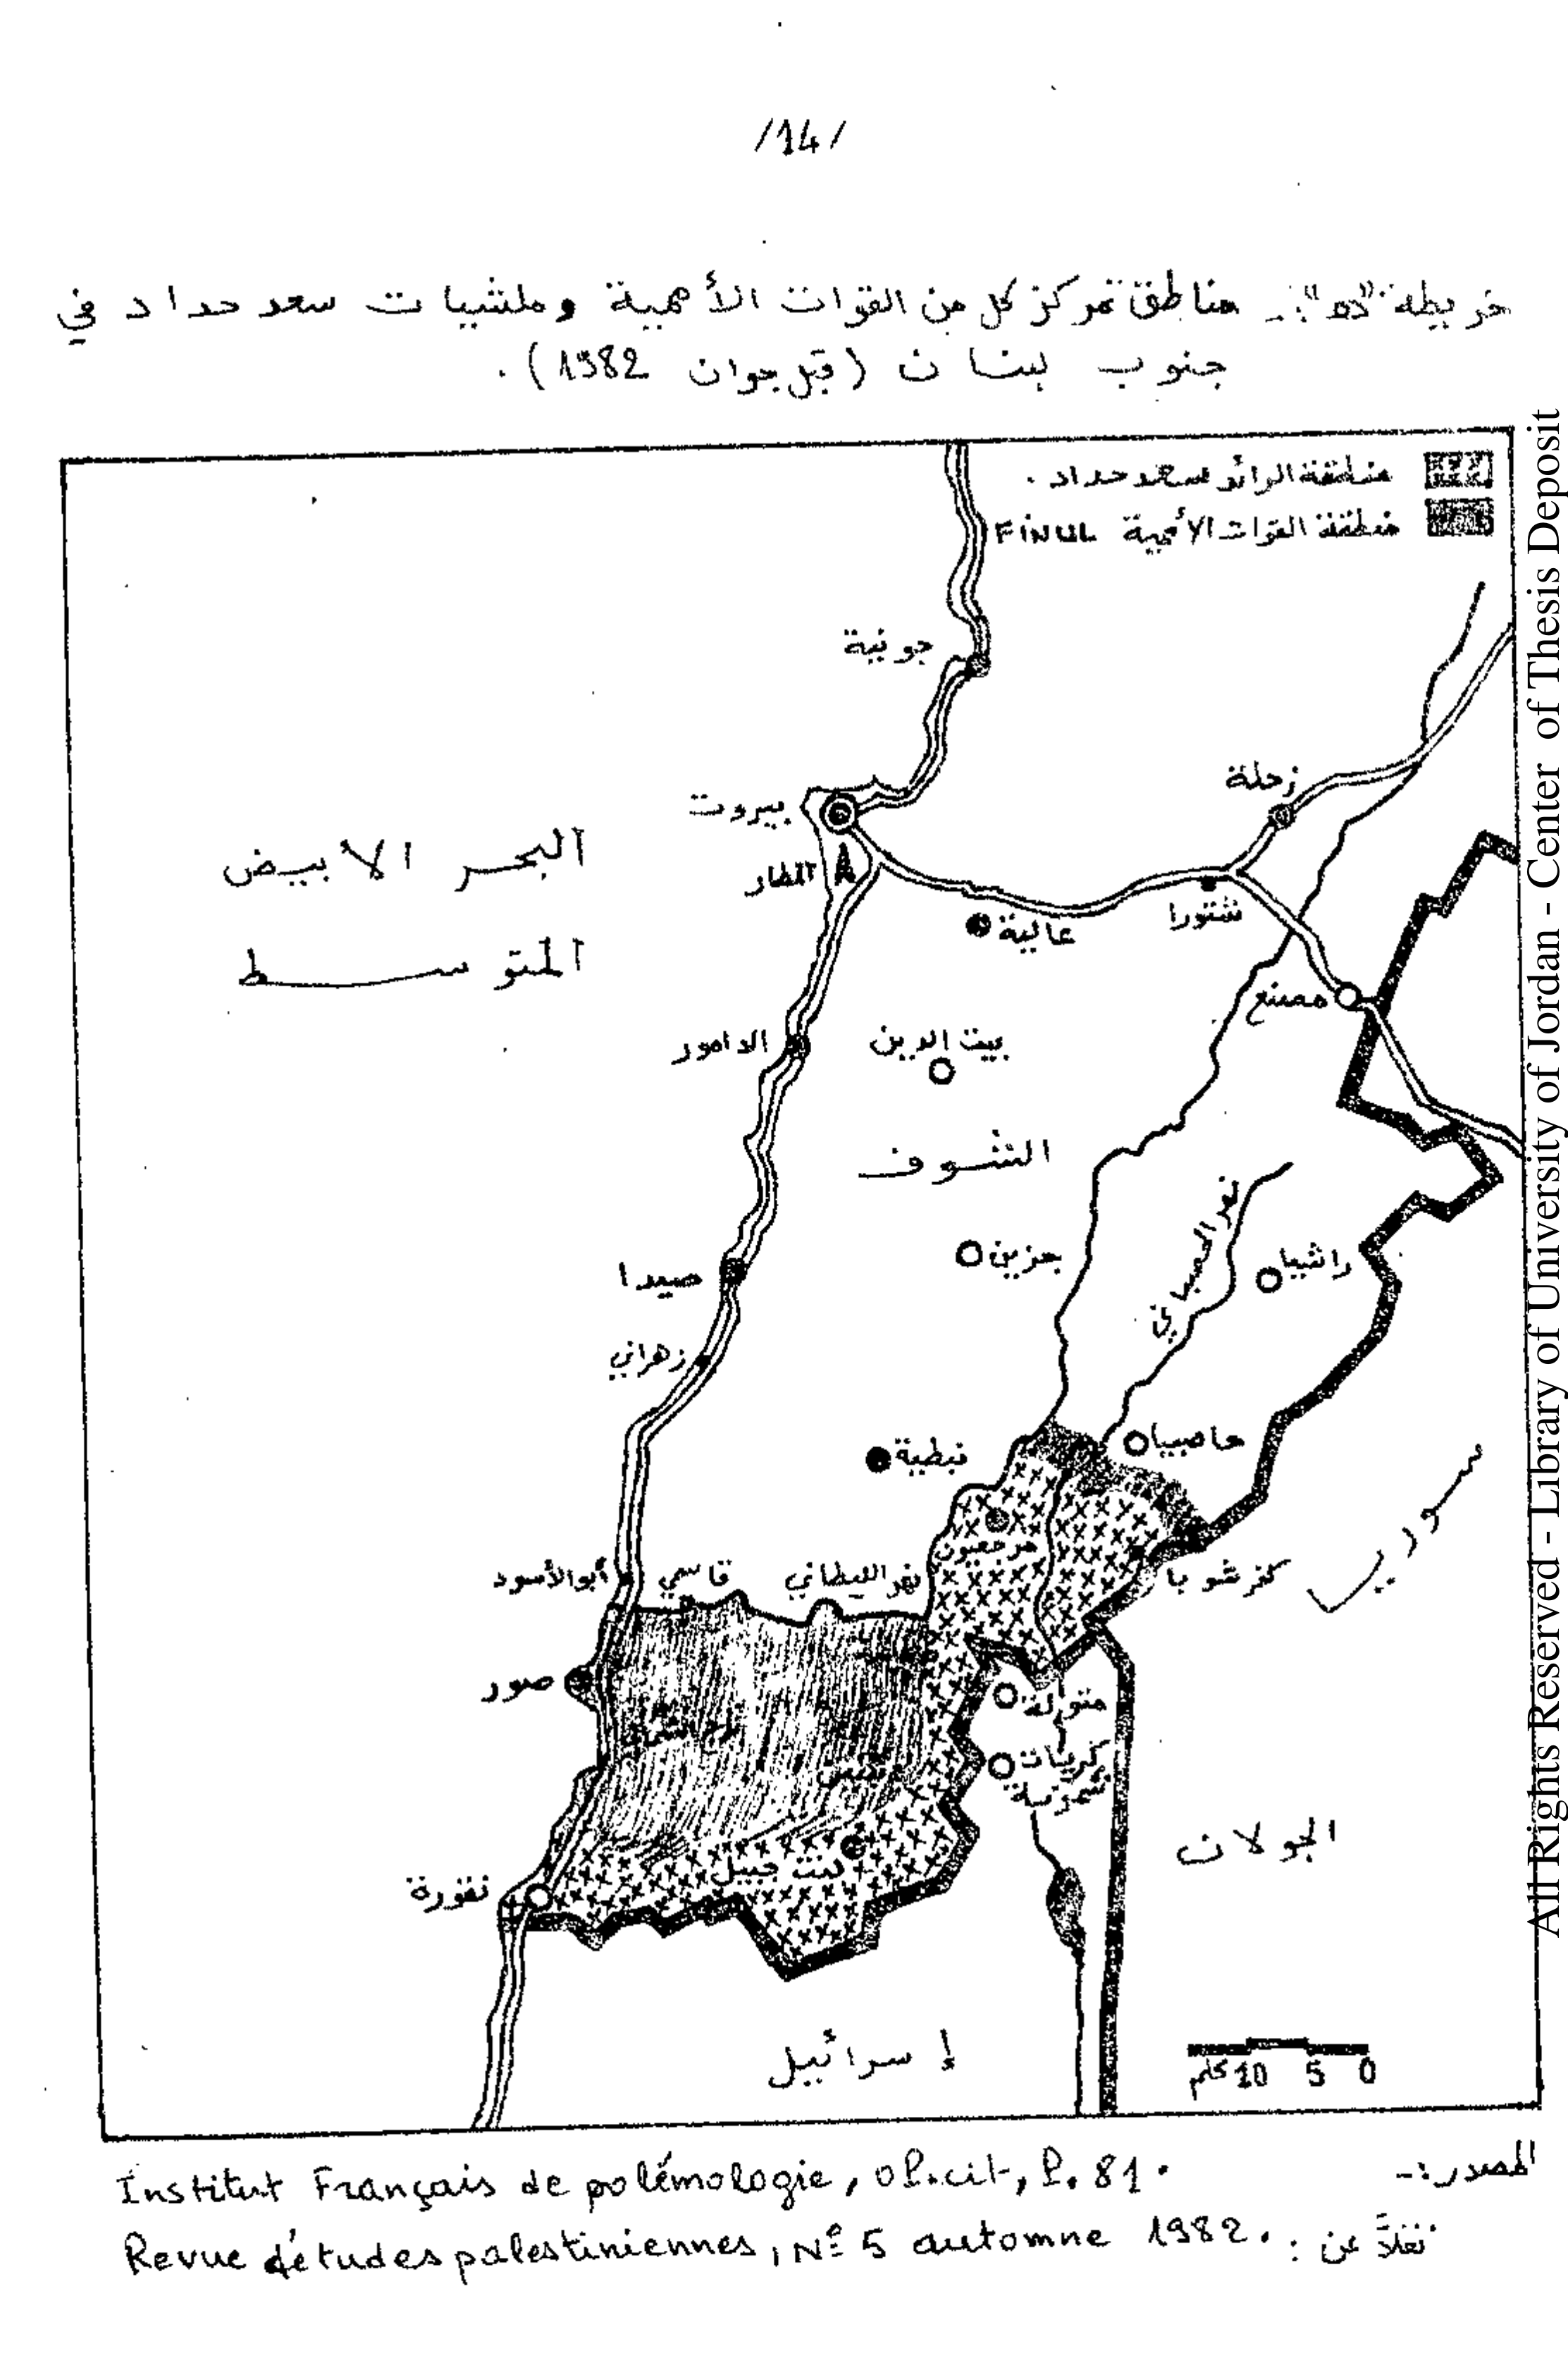 /14/
خريطة "ده": مناطق تمركز كل من القوات الأممية وملشيات سعد حداد في
جنوب لبنان (قبل جوان 1982).
منطقة الرائد سعد حداد.
منطقة القوات الأممية FINUL
جونية
زحلة
بيروت
المطار
البحر الأبيض
المتوسط
شتورا
عالية
مصنع
الدامور
بيت الدين
الشوف
نهر الحصباني
جزين
راشيا
صيدا
زهراني
حاصبيا
نبطية
سوريا
مرجعيون
أبو الأسود
قاسمي
نهر الليطاني
كفر شوبا
صور
متولة
كريات
شمونة
الجولان
بنت جبيل
نقورة
إسرائيل
0 5 10 كلم
المصدر:-
Institut Français de polémologie, op.cit, P. 81.
نقلاً عن : Revue d'études palestiniennes, Nº 5 automne 1982.
All Rights Reserved - Library of University of Jordan - Center of Thesis Deposit